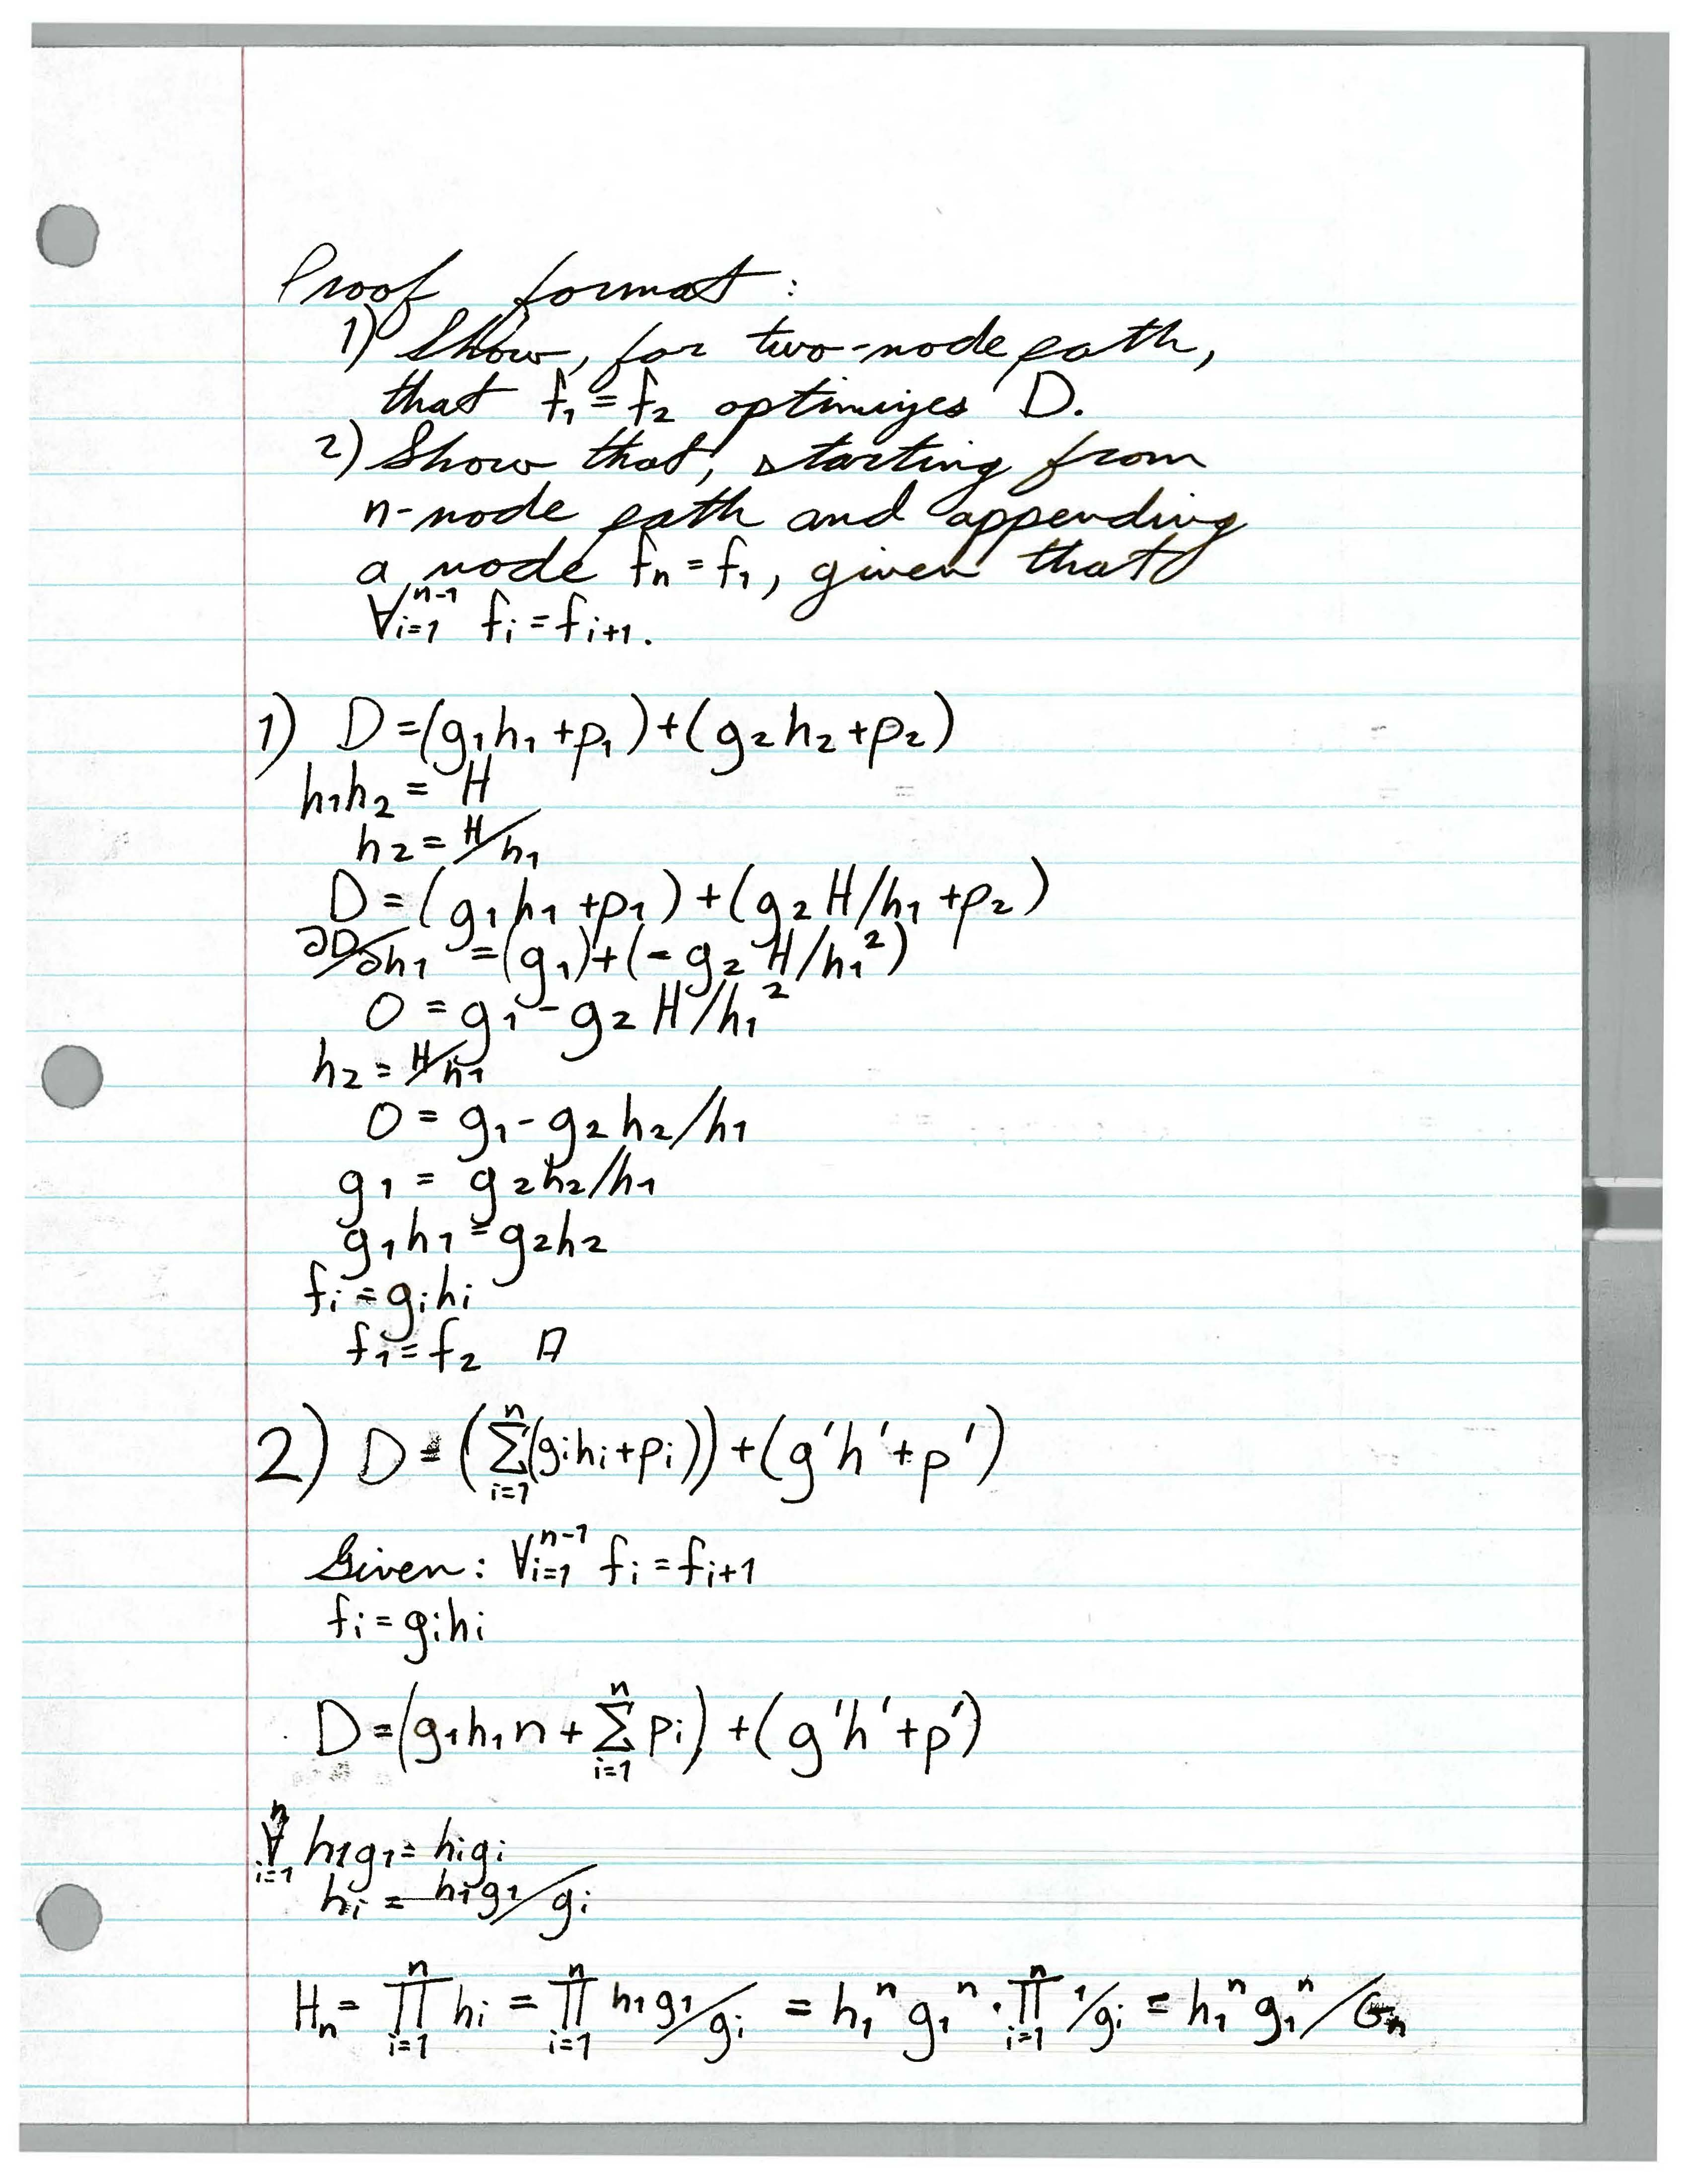 Proof format:
1) Show, for two-node path,
that f₁ = f₂ optimizes D.
2) Show that, starting from
n-node path and appending
a node fₙ = f₁, given that
∀ᵢ₌₁ⁿ⁻¹ fᵢ = fᵢ₊₁.
1) D = (g₁h₁ + p₁) + (g₂h₂ + p₂)
h₁h₂ = H
h₂ = H/h₁
D = (g₁h₁ + p₁) + (g₂H/h₁ + p₂)
∂D/∂h₁ = (g₁) + (-g₂H/h₁²)
0 = g₁ - g₂H/h₁²
h₂ = H/h₁
0 = g₁ - g₂h₂/h₁
g₁ = g₂h₂/h₁
g₁h₁ = g₂h₂
fᵢ = gᵢhᵢ
f₁ = f₂ □
2) D = (∑ᵢ₌₁ⁿ(gᵢhᵢ + pᵢ)) + (g'h' + p')
Given: ∀ᵢ₌₁ⁿ⁻¹ fᵢ = fᵢ₊₁
fᵢ = gᵢhᵢ
D = (g₁h₁n + ∑ᵢ₌₁ⁿ pᵢ) + (g'h' + p')
∀ᵢ₌₁ⁿ h₁g₁ = hᵢgᵢ
hᵢ = h₁g₁/gᵢ
Hₙ = ∏ᵢ₌₁ⁿ hᵢ = ∏ᵢ₌₁ⁿ h₁g₁/gᵢ = h₁ⁿg₁ⁿ · ∏ᵢ₌₁ⁿ 1/gᵢ = h₁ⁿg₁ⁿ/Gₙ